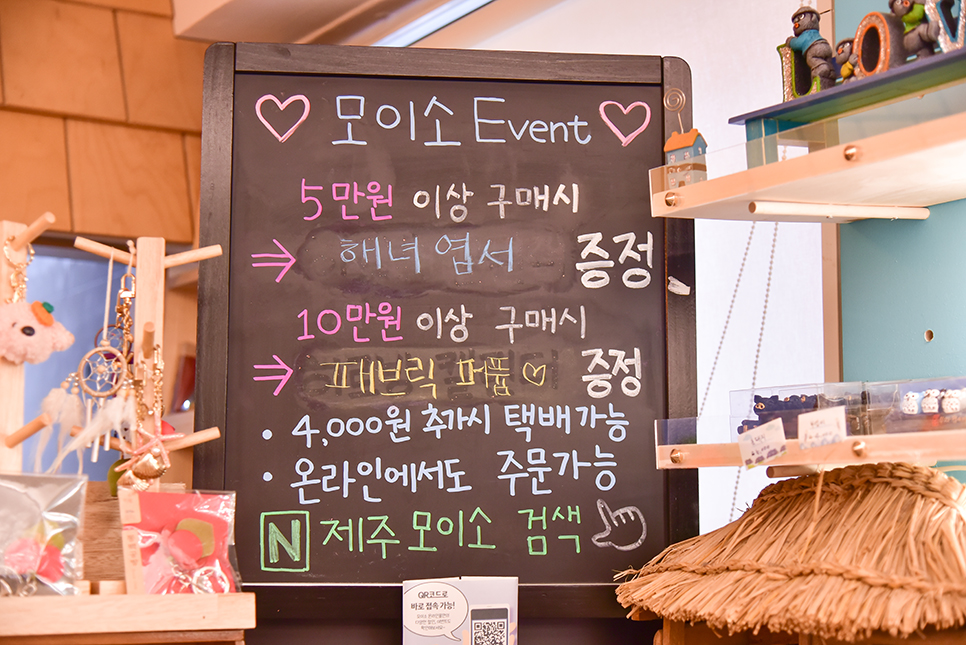 모이소 Event
5만원 이상 구매시
→ 해녀 엽서 증정
10만원 이상 구매시
→ 패브릭 퍼퓸 ♡ 증정
• 4,000원 추가시 택배가능
• 온라인에서도 주문가능
N 제주 모이소 검색
QR코드로
바로 접속 가능!